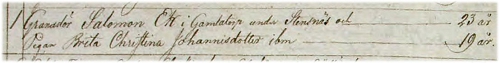 1 Granadör Salomon Ek i Gamtatorp under Stensnäs och 23 år
Pigan Brita Christina Johannisdotter ibm 19 år.